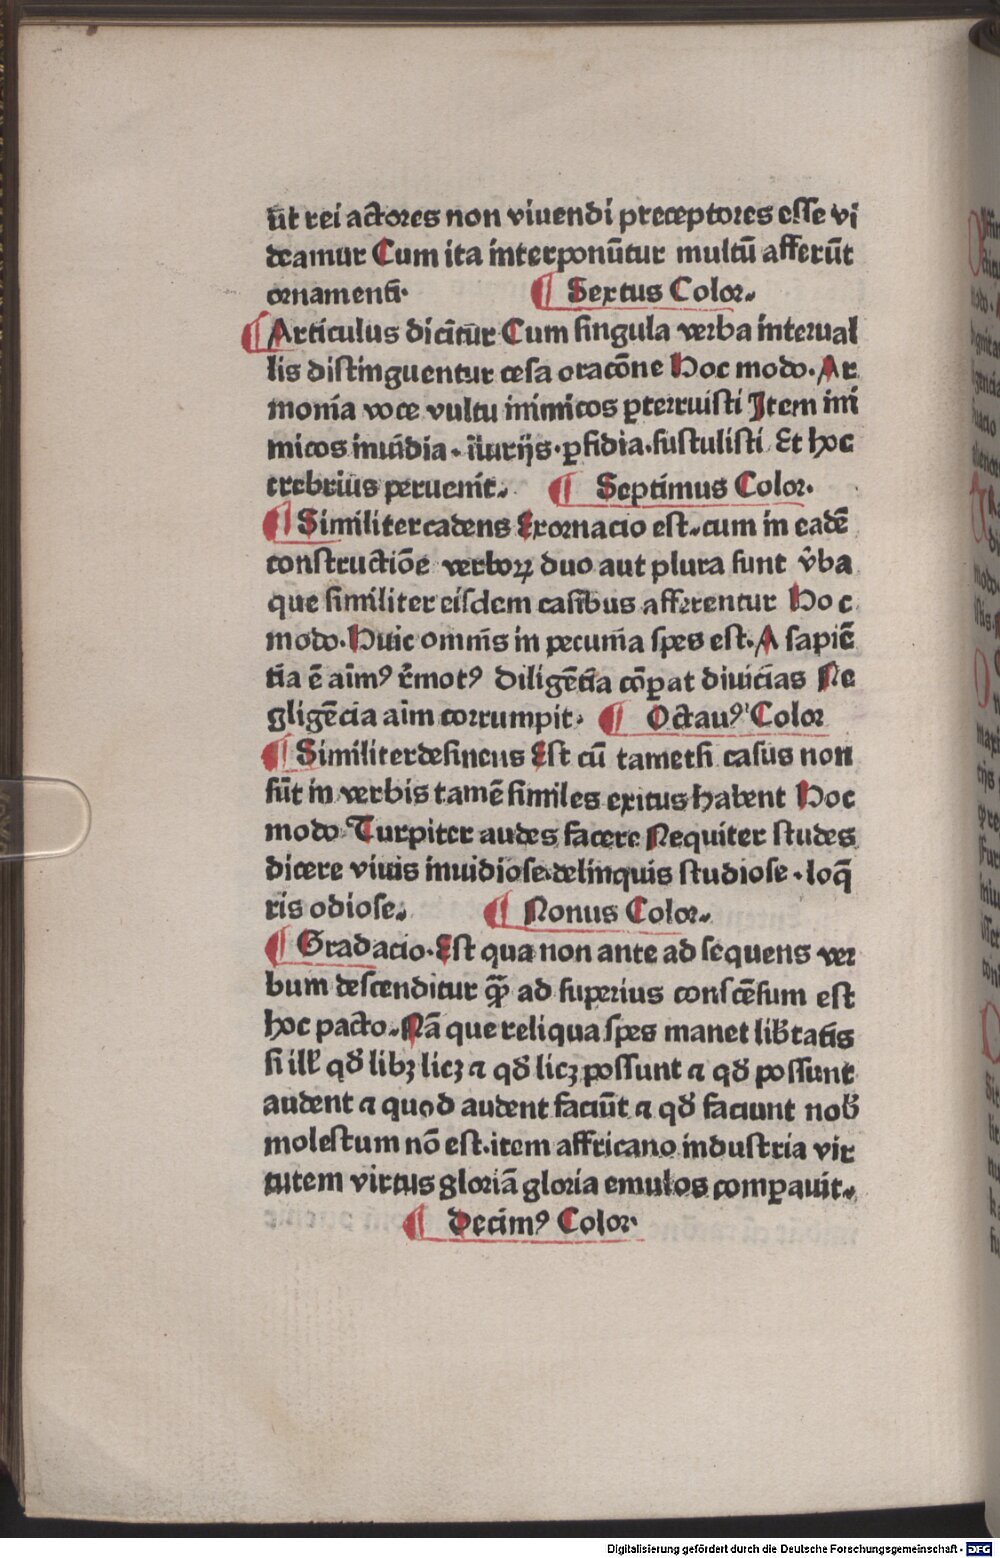 ūt rei actores non viuendi preceptores esse vi
deamur Cum ita interponūtur multū afferūt
ornamenti·
¶ Sextus Color.
¶ Articulus dicit̄ur Cum singula verba interual
lis distinguentur cesa oracōne Hoc modo. Ar
monia voce vultu inimicos ꝑterruisti Item ini
micos inuidia. iīurijs. ꝑfidia. sustulisti Et hoc
crebrius peruenit.
¶ Septimus Color.
¶ Similiter cadens Exornacio est. cum in eadē
constructiōe verboꝝ duo aut plura sunt v̄ba
que similiter eisdem casibus afferentur Hoc
modo. Huic omnis in pecunia spes est. A sapiē
tia ē aim̄ꝰ r̄motꝰ diligētia cōꝑat diuicias Ne
gligēcia aim̄ corrumpit.
¶ Octauꝰ Color
¶ Similiter desinens Est cū tametsi casus non
sūt in verbis tamē similes exitus habent Hoc
modo Turpiter audes facere Nequiter studes
dicere viuis inuidiose delinquis studiose. loq̄
ris odiose.
¶ Nonus Color.
¶ Gradacio. Est qua non ante ad sequens ver
bum descenditur qᷓꝫ ad superius conscēsum est
hoc pacto. Nā que reliqua spes manet lib̄tatis
si ill̄ qđ libꝫ licꝫ ⁊ qđ licꝫ possunt ⁊ qđ possunt
audent ⁊ quod audent faciūt ⁊ qđ faciunt nob̄
molestum nō est. item affricano industria vir
tutem virtus gloriā gloria emulos comꝑauit.
¶ Decimꝰ Color.
Digitalisierung gefördert durch die Deutsche Forschungsgemeinschaft - DFG